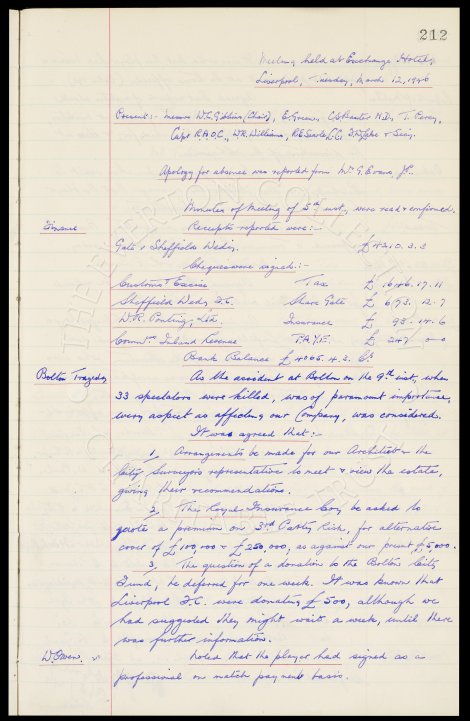 212
Meeting held at Exchange Hotel,
Liverpool, Tuesday, March 12, 1946
Present:- Messrs W.C. Gibbins (Chair), E. Green, C.S. Baxter M.D., T. Percy,
Capt R.A.O.C., W.R. Williams, R.E. Searle, & Secy.
Apology for absence was reported from Mr. G. Evans, J.P.
Minutes of Meeting of 5th inst, were read & confirmed.
Finance
Receipts reported were:-
Gate v Sheffield Wedy. £4210.3.3
Cheques were signed:-
Customs & Excise Tax £1646.17.11
Sheffield Wedy F.C. Share Gate £693.12.7
W.R. Ponting, Ltd. Insurance £98.14.6
Commrs Inland Revenue P.A.Y.E. £247 0-0
Bank Balance £4065.4.3. Cr
Bolton Tragedy
As the accident at Bolton on the 9th inst, when
33 spectators were killed, was of paramount importance,
every aspect as affecting our Company, was considered.
It was agreed that:-
1. Arrangements be made for our Architect & the
City Surveyors representative to meet & view the estate,
giving their recommendations.
2. The Royal Insurance Coy be asked to
quote a premium on 3rd Party Risk, for alternative
cover of £100,000 & £250,000, as against our present £5,000.
3. The question of a donation to the Bolton City
Fund, be deferred for one week. It was known that
Liverpool F.C. were donating £500, although we
had suggested they might wait a week, until there
was further information.
W. Owen.
Noted that the player had signed as a
professional on match payment basis.
THE EVERTON COLLECTION